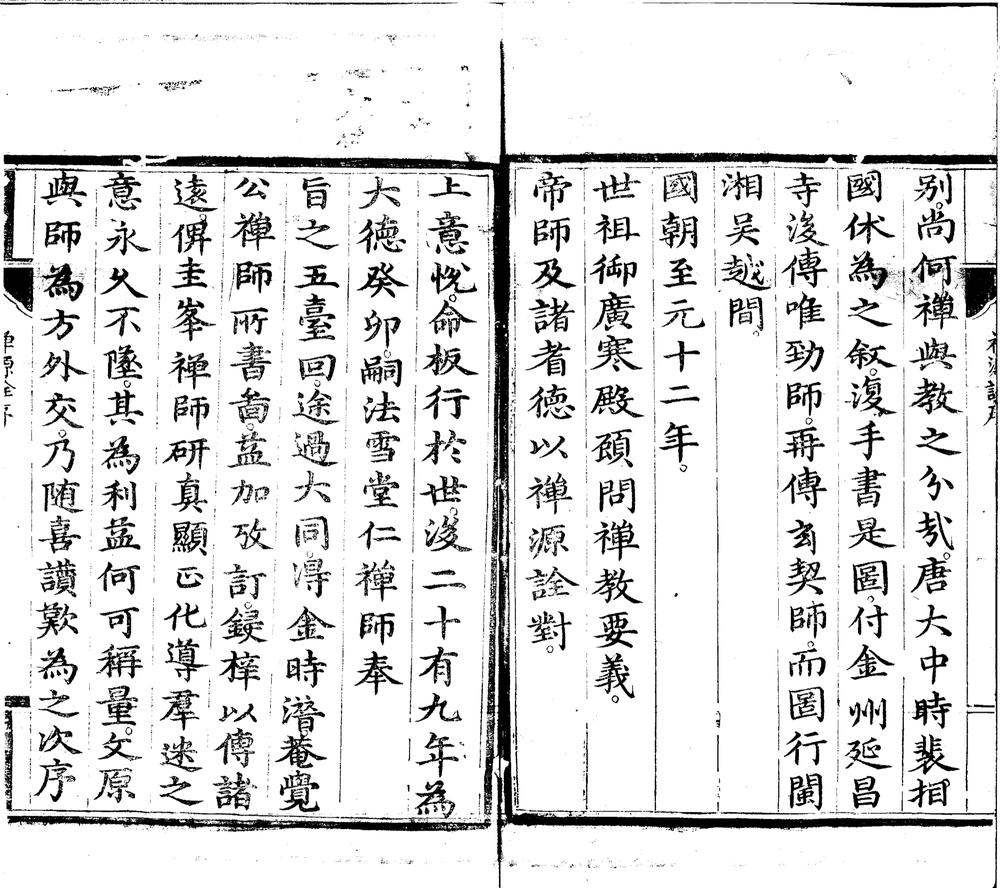 別。尚何禅與教之分㢤。唐大中時裴相
國休為之叙。復手書是圖。付金州延昌
寺後傳唯勁師。再傳玄契師。而圖行閩
湘吴越間。
國朝至元十二年。
世祖御廣寒殿頋問禅教要義。
帝師及諸耆德以禅源詮對。
上意悅。命板行於世。後二十有九年為
大德癸卯。嗣法雪堂仁禅師奉
旨之五臺回。途過大同。淂金時潛菴覺
公禅師所書啚。葢加攷訂。鋟梓以傳諸
逺。俾圭峯禅師研真顯正化導羣迷之
意永久不墜。其為利葢何可稱量。文原
與師為方外交。乃随喜讃歎為之次序